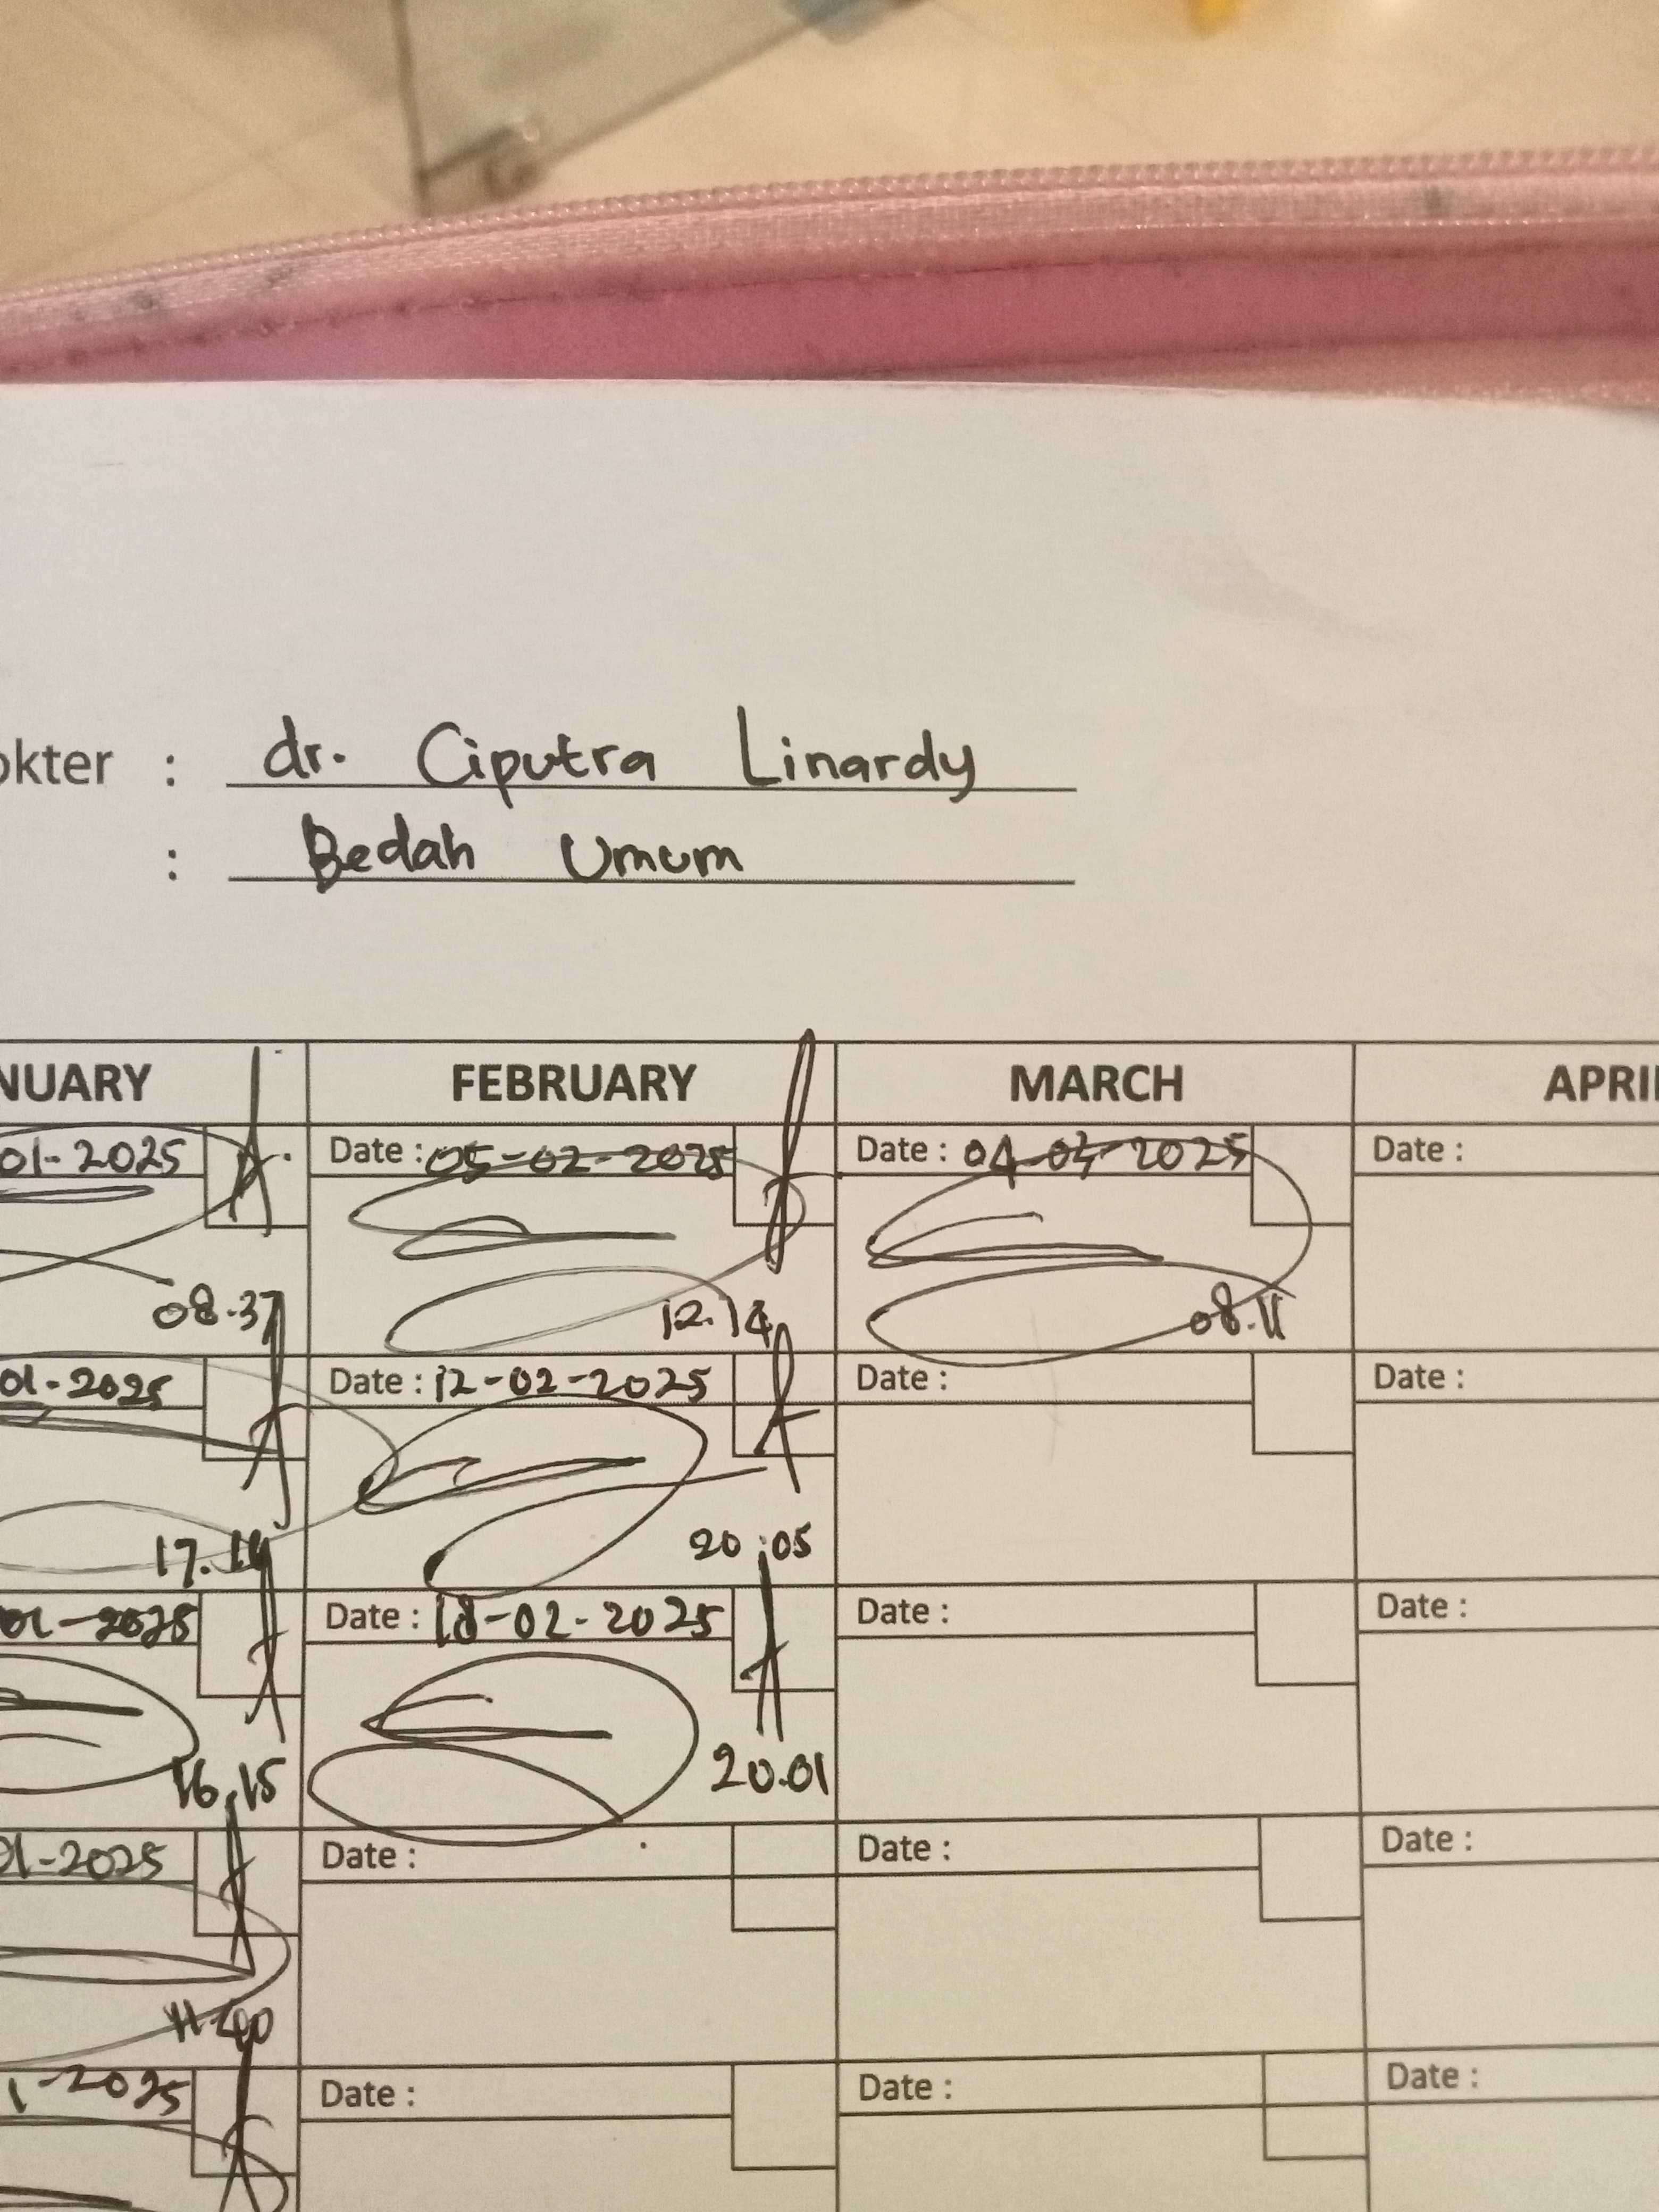 okter : dr. Ciputra Linardy
: Bedah Umum
NUARY FEBRUARY MARCH APRI
01-2025 Date : 05-02-2025 Date : 04-03-2025 Date :
08.37 12.14 08.11
01-2025 Date : 12-02-2025 Date : Date :
17.14 20:05
01-2025 Date : 18-02-2025 Date : Date :
16.15 20.01
01-2025 Date : Date : Date :
11.40
1-2025 Date : Date : Date :